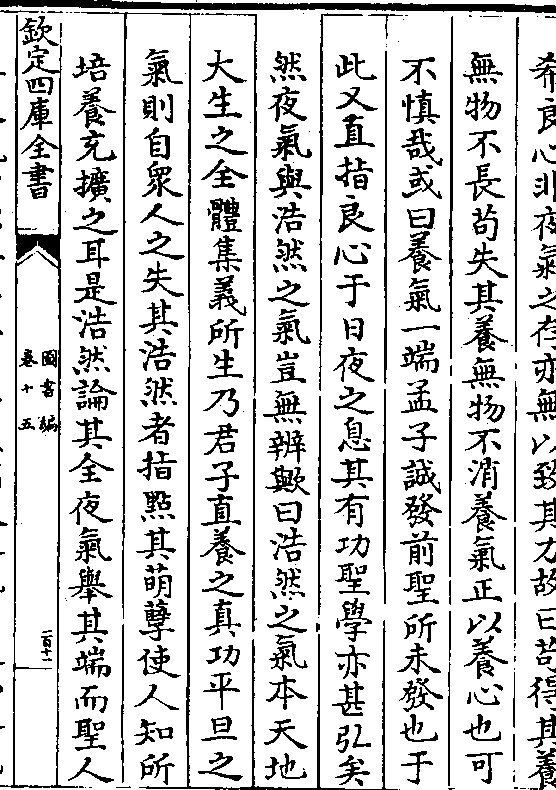 希良心非夜氣之存亦無以致其力故曰苟得其養
無物不長苟失其養無物不消養氣正以養心也可
不慎哉或曰養氣一端孟子誠發前聖所未發也于
此又直指良心于日夜之息其有功聖學亦甚弘矣
然夜氣與浩然之氣豈無辨歟曰浩然之氣本天地
大生之全體集義所生乃君子直養之真功平旦之
氣則自衆人之失其浩然者指點其萌孽使人知所
培養充擴之耳是浩然論其全夜氣舉其端而聖人
欽定四庫全書
圖書編
卷十五
二百十一